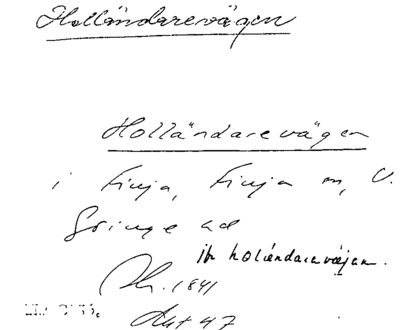 Holländarevägen
Holländarevägen
i Finja, Finja sn, V.
Göinge hd
ib holéndaravæjen.
1841
Akt 47